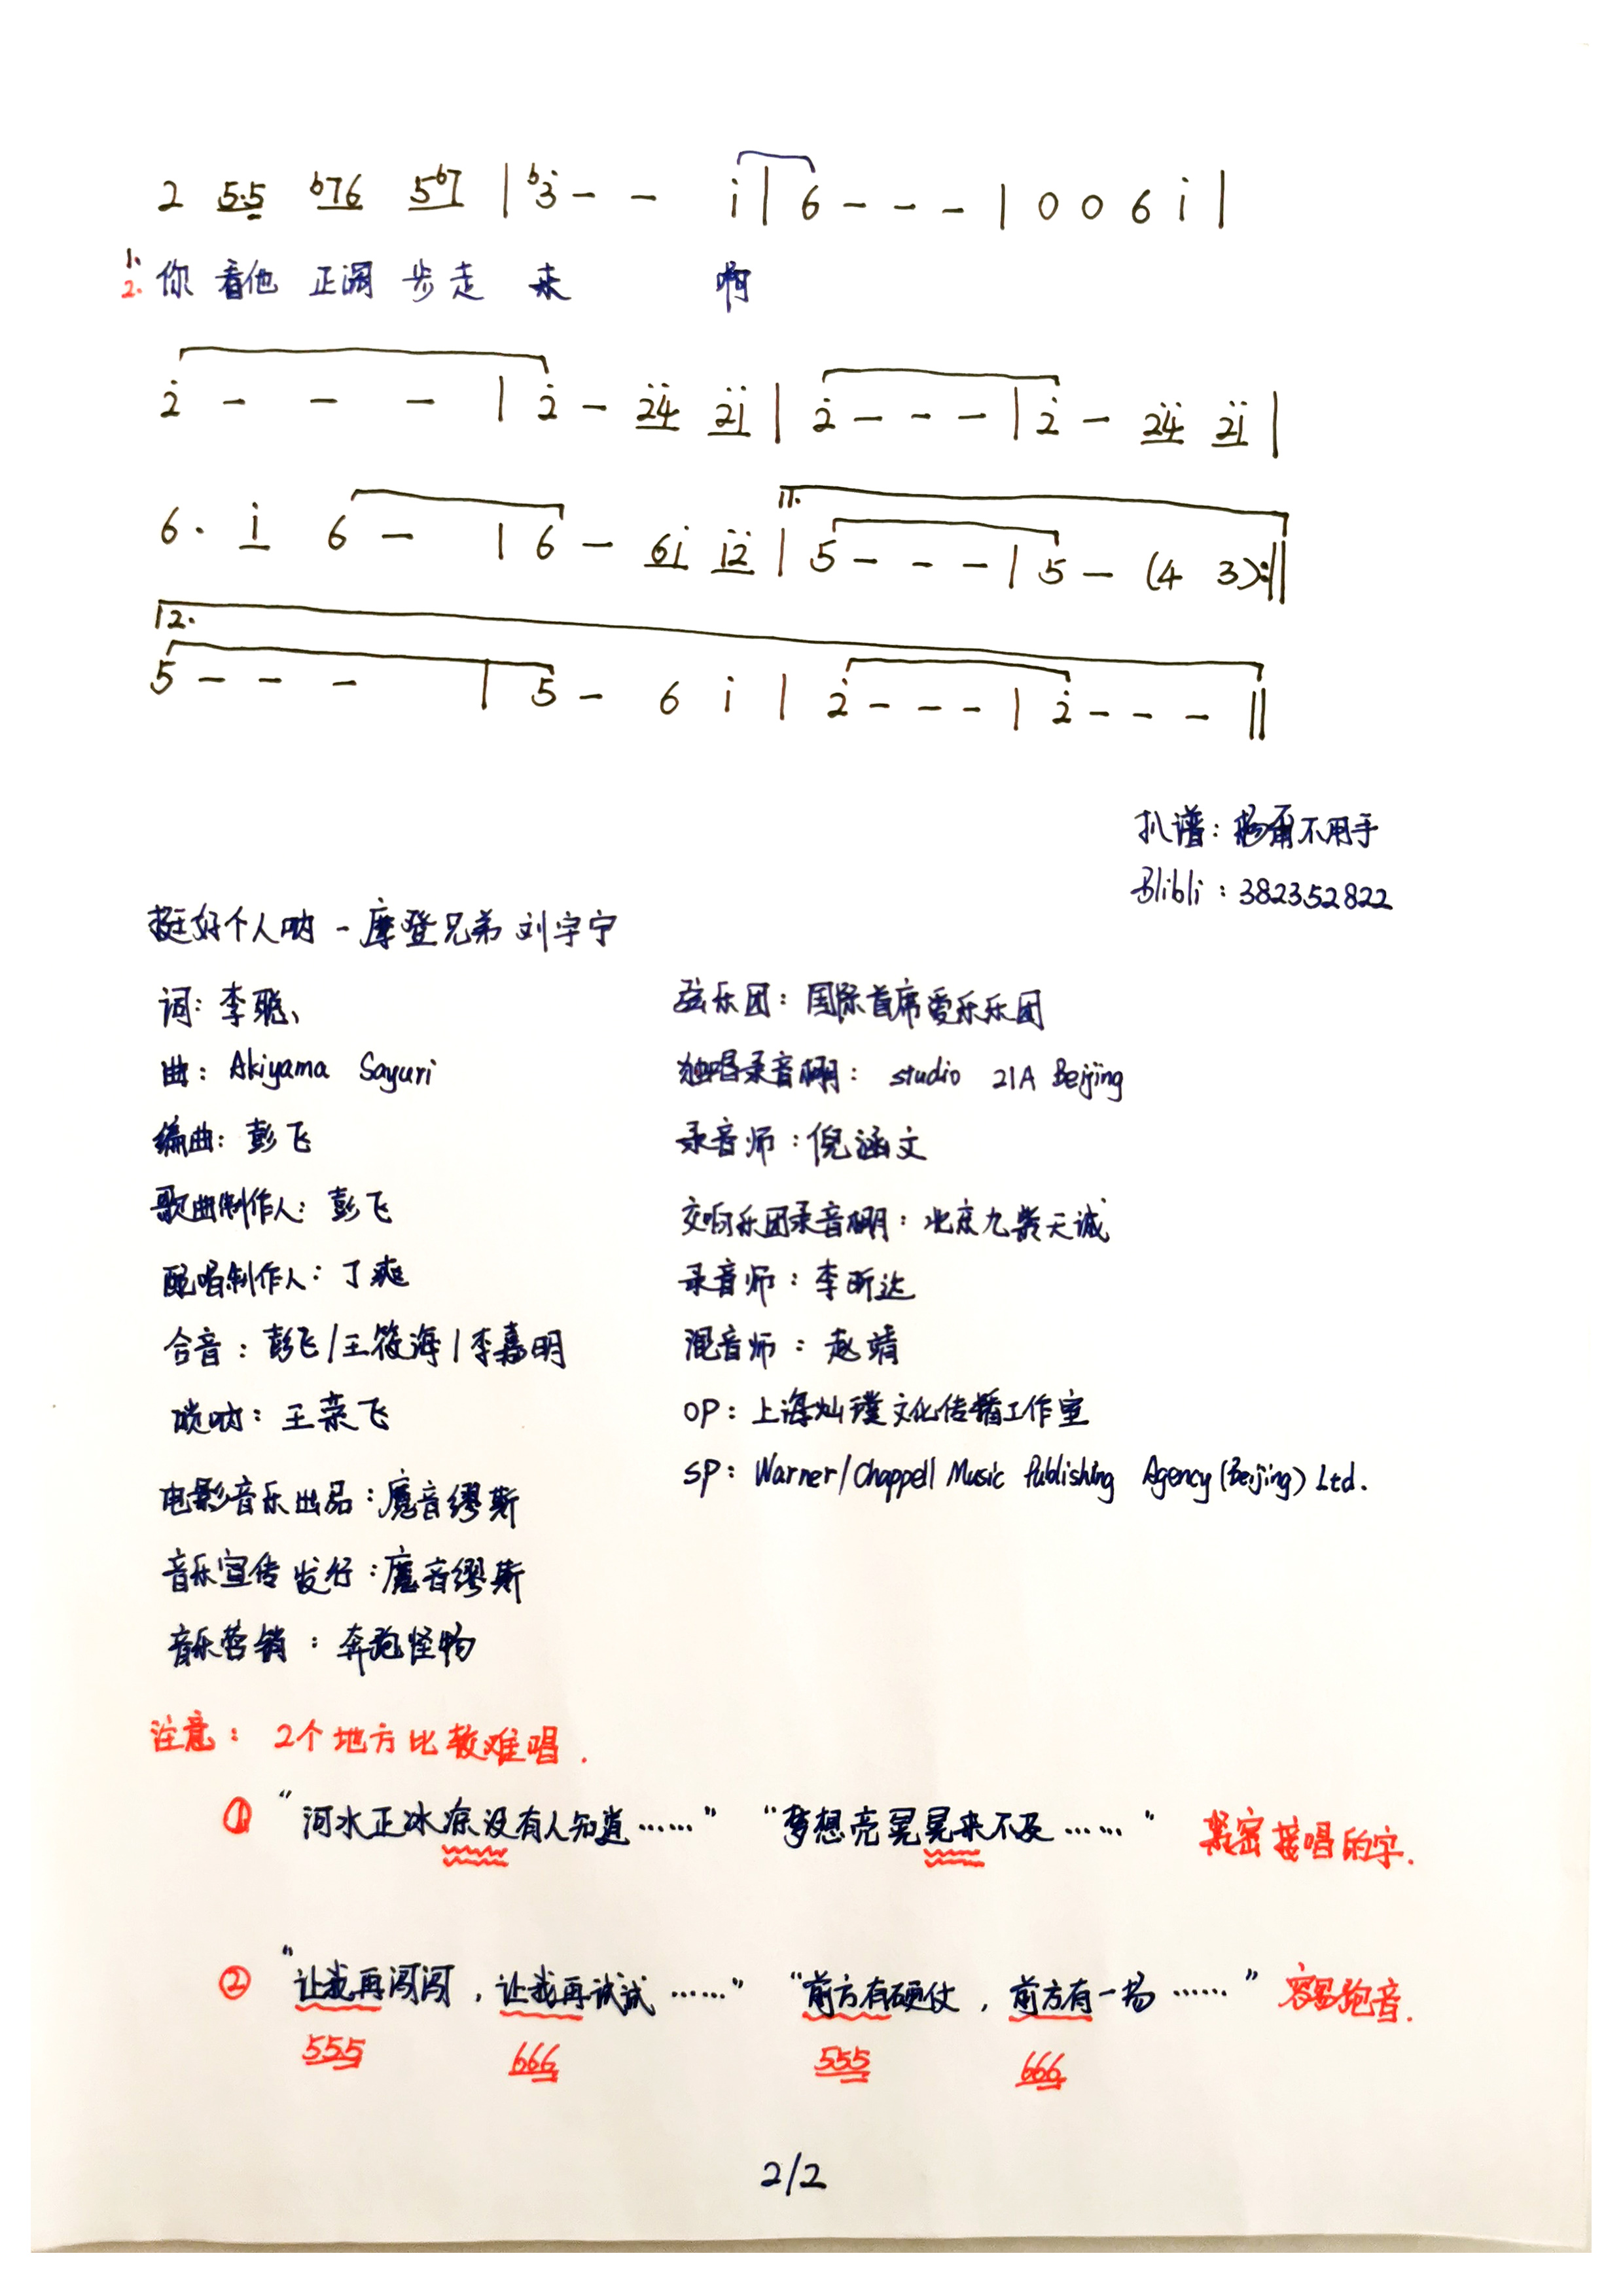 2 5·5 b76 5b7 | b3̇ - - i̇ | 6 - - - | 0 0 6 i̇ |
1.
2. 你 看他 正阔 步走 来 啊
2̇ - - - | 2̇ - 2̇4̇ 2̇i̇ | 2̇ - - - | 2̇ - 2̇4̇ 2̇i̇ |
6· i̇ 6 - | 6 - 6i̇ i̇2̇ | 1. 5 - - - | 5 - (4 3) :||
2.
5 - - - | 5 - 6 i̇ | 2̇ - - - | 2̇ - - - ||
扒谱：杨甭不用手
Blibli：382352822
挺好个人呐 - 摩登兄弟 刘宇宁
词：李聪、
曲：Akiyama Sayuri
编曲：彭飞
歌曲制作人：彭飞
配唱制作人：丁爽
合音：彭飞/王筱海/李嘉明
唢呐：王荣飞
电影音乐出品：魔音缪斯
音乐宣传发行：魔音缪斯
音乐营销：奔跑怪物
弦乐团：国际首席爱乐乐团
独唱录音棚：studio 21A Beijing
录音师：倪涵文
交响乐团录音棚：北京九紫天诚
录音师：李昕达
混音师：赵靖
OP：上海灿璞文化传播工作室
SP：Warner/Chappell Music Publishing Agency (Beijing) Ltd.
注意：2个地方比较难唱.
① “河水正冰凉没有人知道……” “梦想亮晃晃来不及……” 紧密接唱的字.
② “让我再闯闯，让我再试试……” “前方有硬仗，前方有一场……” 容易跑音.
555 666 555 666
2/2